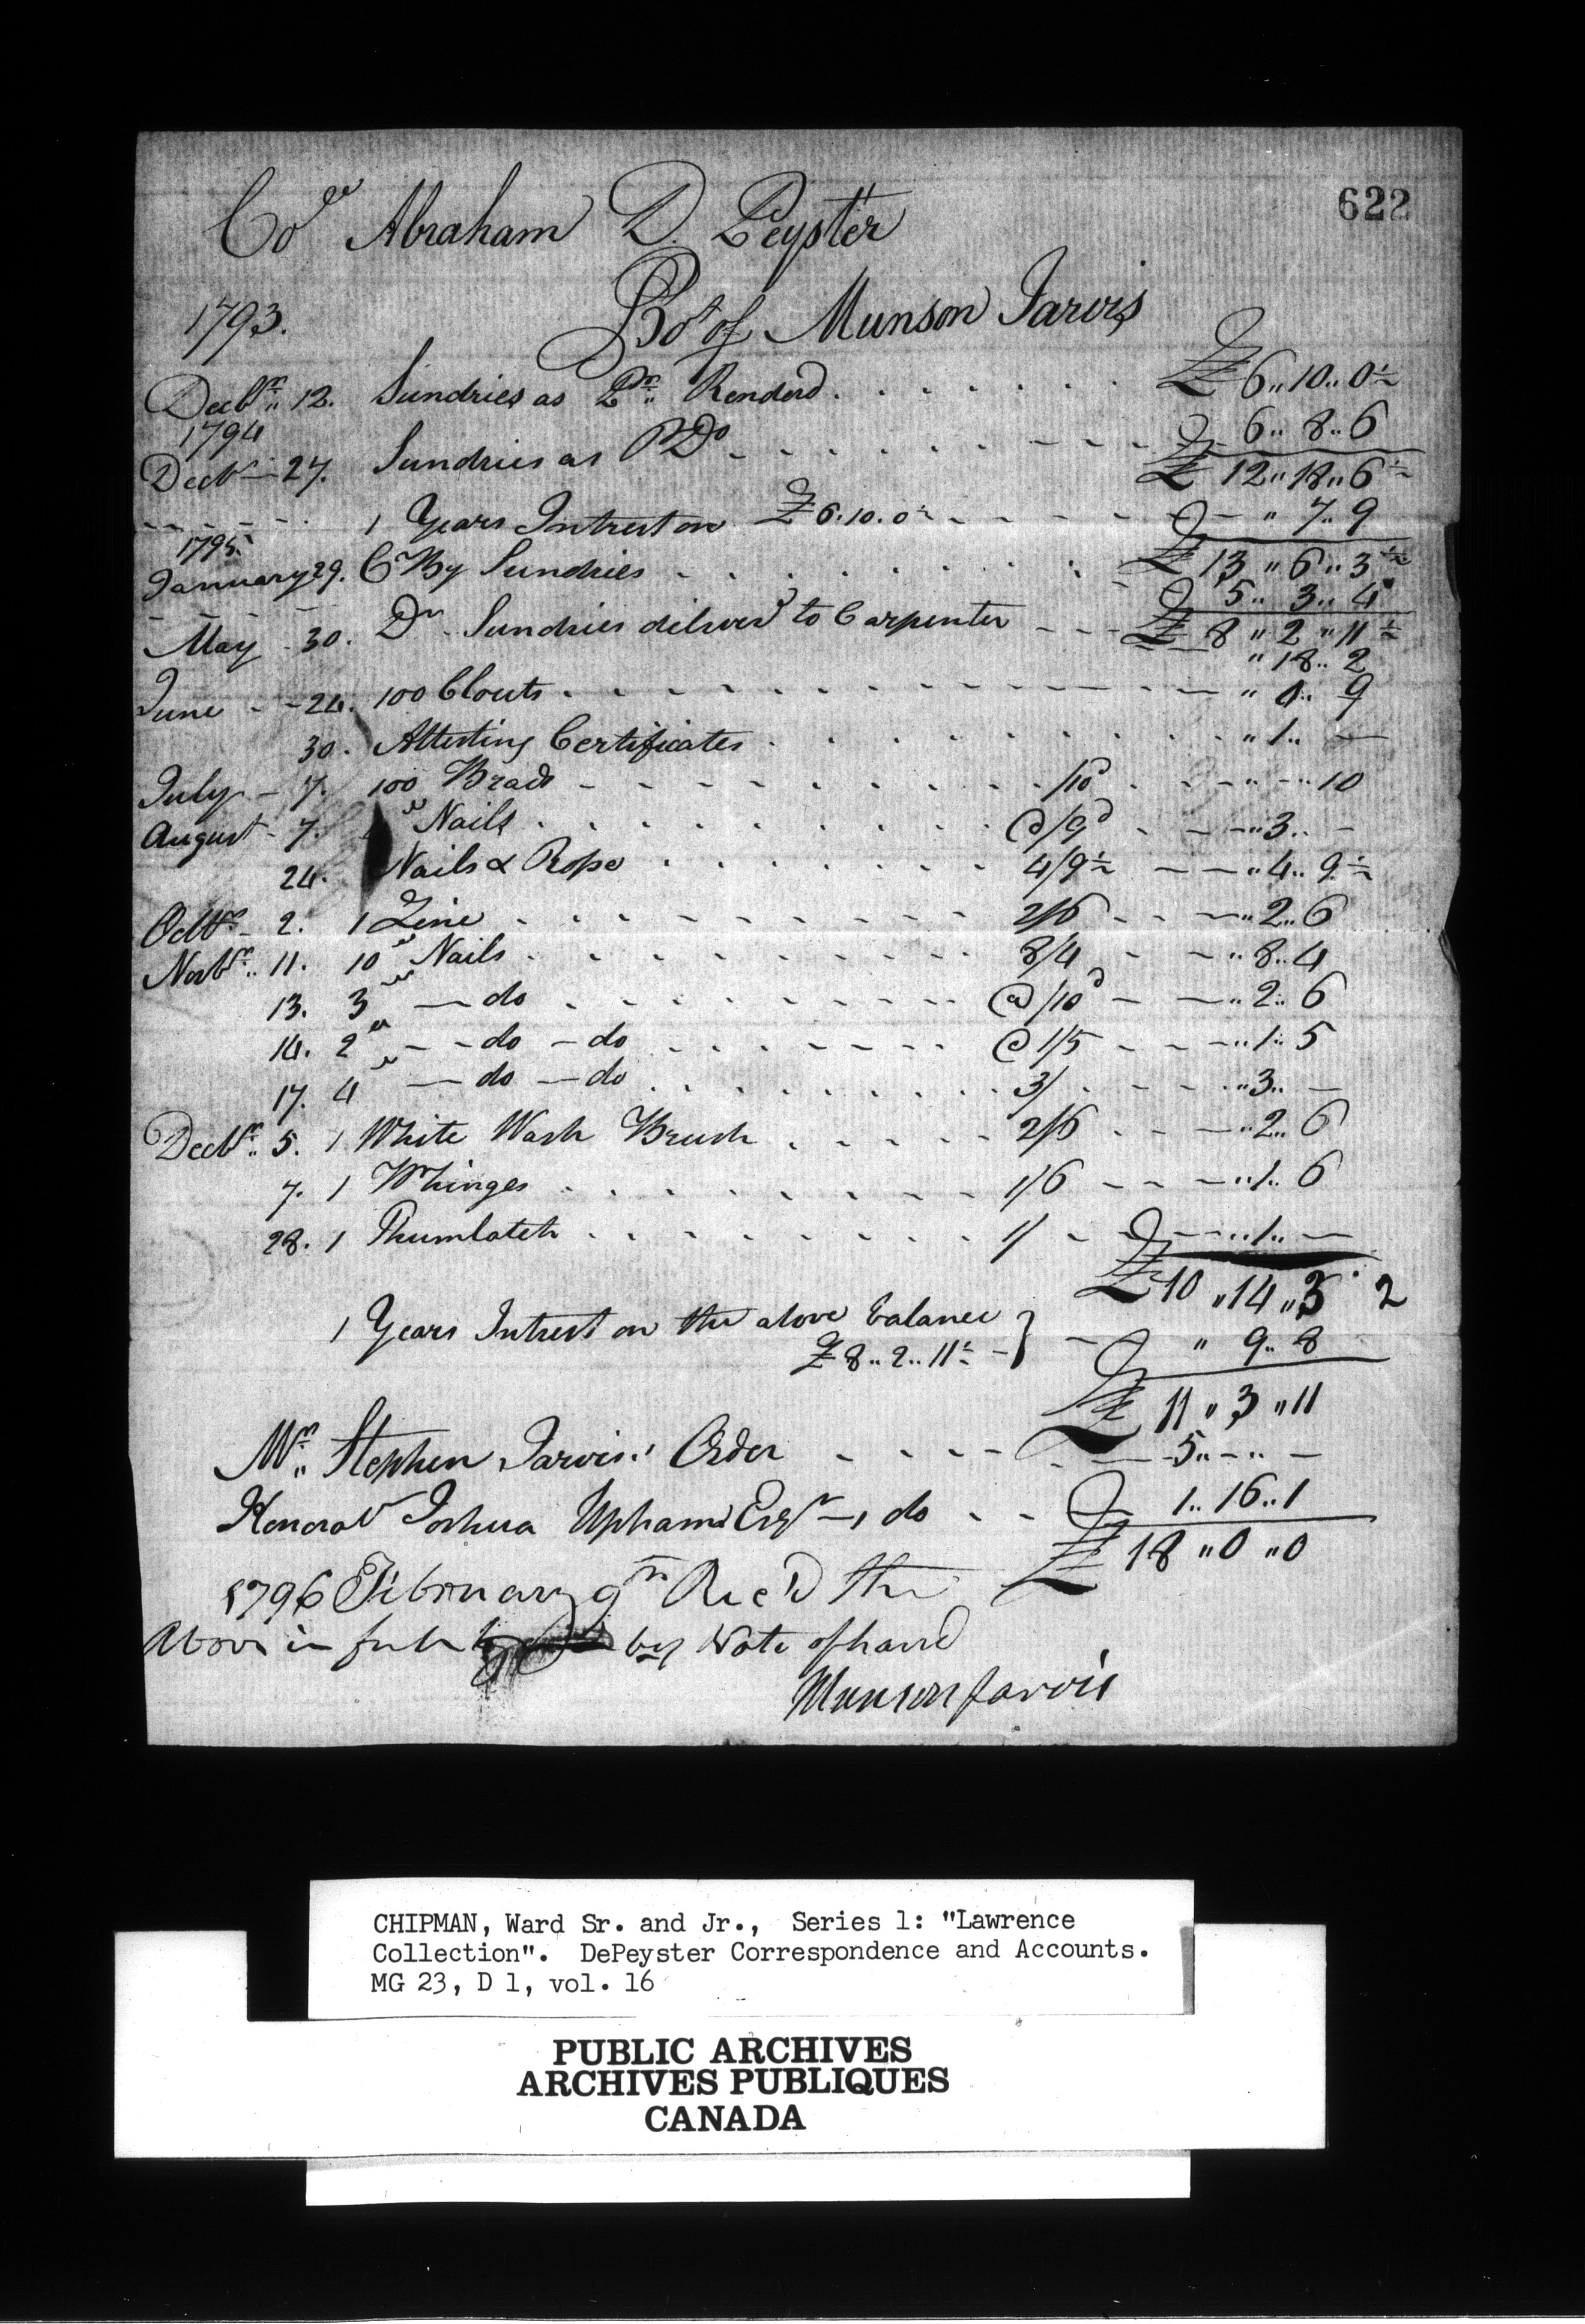 622
Col Abraham D. Peyster
1793. Bot of Munson Jarvis
Decbr 12. Sundries as Pr Renderd . . . . . . £6,,10,,0½
1794
Decbr 27. Sundries as P Do - - - - - - 6,,8,,6
£12,,18,,6½
1 Years Intrest on £6.10.0½ - - - ,,7,,9
£13,,6,,3½
1795
January 29. Cr By Sundries - - - - 5,,3,,4
£8,,2,,11½
May 30. Dr Sundries deliverd to Carpenter - - - ,,18,,2
June - - 24. 100 Clouts - - - - ,, 9
30. Attesting Certificates . . . . ,,1,, —
July - 7. 100 Brads - - - - /10d - - - ,,--,,10
August - 7. Nails . . . . @/9d - - ,,3,, -
24. Nails & Rope . . . . 4/9½ - - ,,4,,9½
Octbr - 2. 1 Line . . . . 2/6 - - ,,2,,6
Novbr 11. 10 Nails . . . . 8/4 - - ,,8,,4
13. 3 — do . . . . @/10d - - ,,2,,6
14. 2 - - do - do . . . . @ 1/5 - - ,,1,,5
17. 4 — do — do . . . . 3/ . - - ,,3,, —
Decbr 5. 1 White Wash Brush . . . . 2/6 . - - ,,2,,6
7. 1 Pr hinges . . . . 1/6 - - - ,,1,,6
28. 1 Thumblatch . . . . 1/ - - ,,1,, —
£10,,14,,3 2
1 Years Intrest on the above balance } - ,,9,,8
£8,,2,,11½ -
£11,,3,,11
Mr Stephen Jarvis's Order - - - - 5,,-,,-
Honoral Joshua Upham Esqr —, do - - 1,,16,,1
£18,,0,,0
1796 February 9th Rec'd the
Above in full by Note of hand
Munson Jarvis
CHIPMAN, Ward Sr. and Jr., Series 1: "Lawrence
Collection". DePeyster Correspondence and Accounts.
MG 23, D 1, vol. 16
PUBLIC ARCHIVES
ARCHIVES PUBLIQUES
CANADA